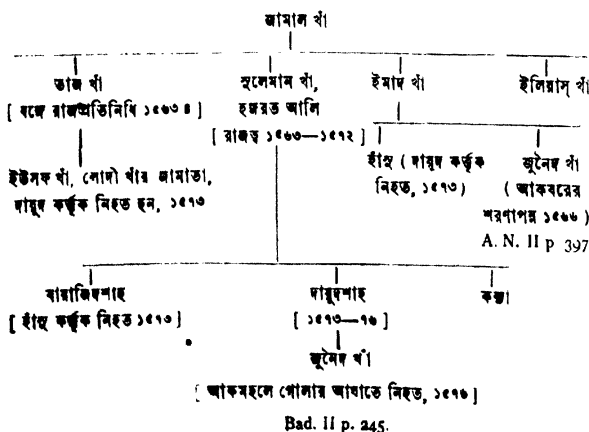 জামাল খাঁ
তাজ খাঁ
[ বঙ্গে রাজপ্রতিনিধি ১৫৬৩ ৪ ]
ইউসফ খাঁ, লোদী খাঁর জামাতা,
দায়ুদ কর্ত্তৃক নিহত হন, ১৫৭৩
সুলেমান খাঁ,
হজরত আলি
[ রাজত্ব ১৫৬৩—১৫৭২ ]
ইমাদ খাঁ
ইলিয়াস্ খাঁ
হাঁসু ( দায়ুদ কর্ত্তৃক
নিহত, ১৫৭৩ )
জুনৈদ খাঁ
( আকবরের
শরণাপন্ন ১৫৬৬ )
A. N. II p 397
বায়াজিদশাহ
[ হাঁসু কর্ত্তৃক নিহত ১৫৭৩ ]
দায়ুদশাহ
[ ১৫৭৩—৭৬ ]
কন্যা
জুনৈদ খাঁ
[ আকমহলে গোলার আঘাতে নিহত, ১৫৭৬ ]
Bad. II p. 245.